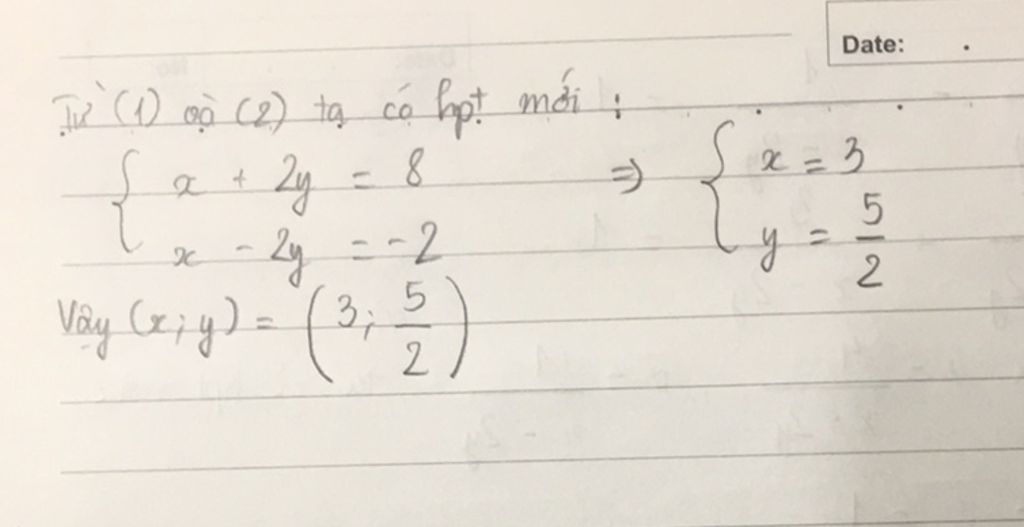 Date:
Từ (1) và (2) ta có hpt mới :
{ x + 2y = 8 ⇒ { x = 3
x - 2y = -2 y = 5/2
Vậy (x; y) = (3; 5/2)